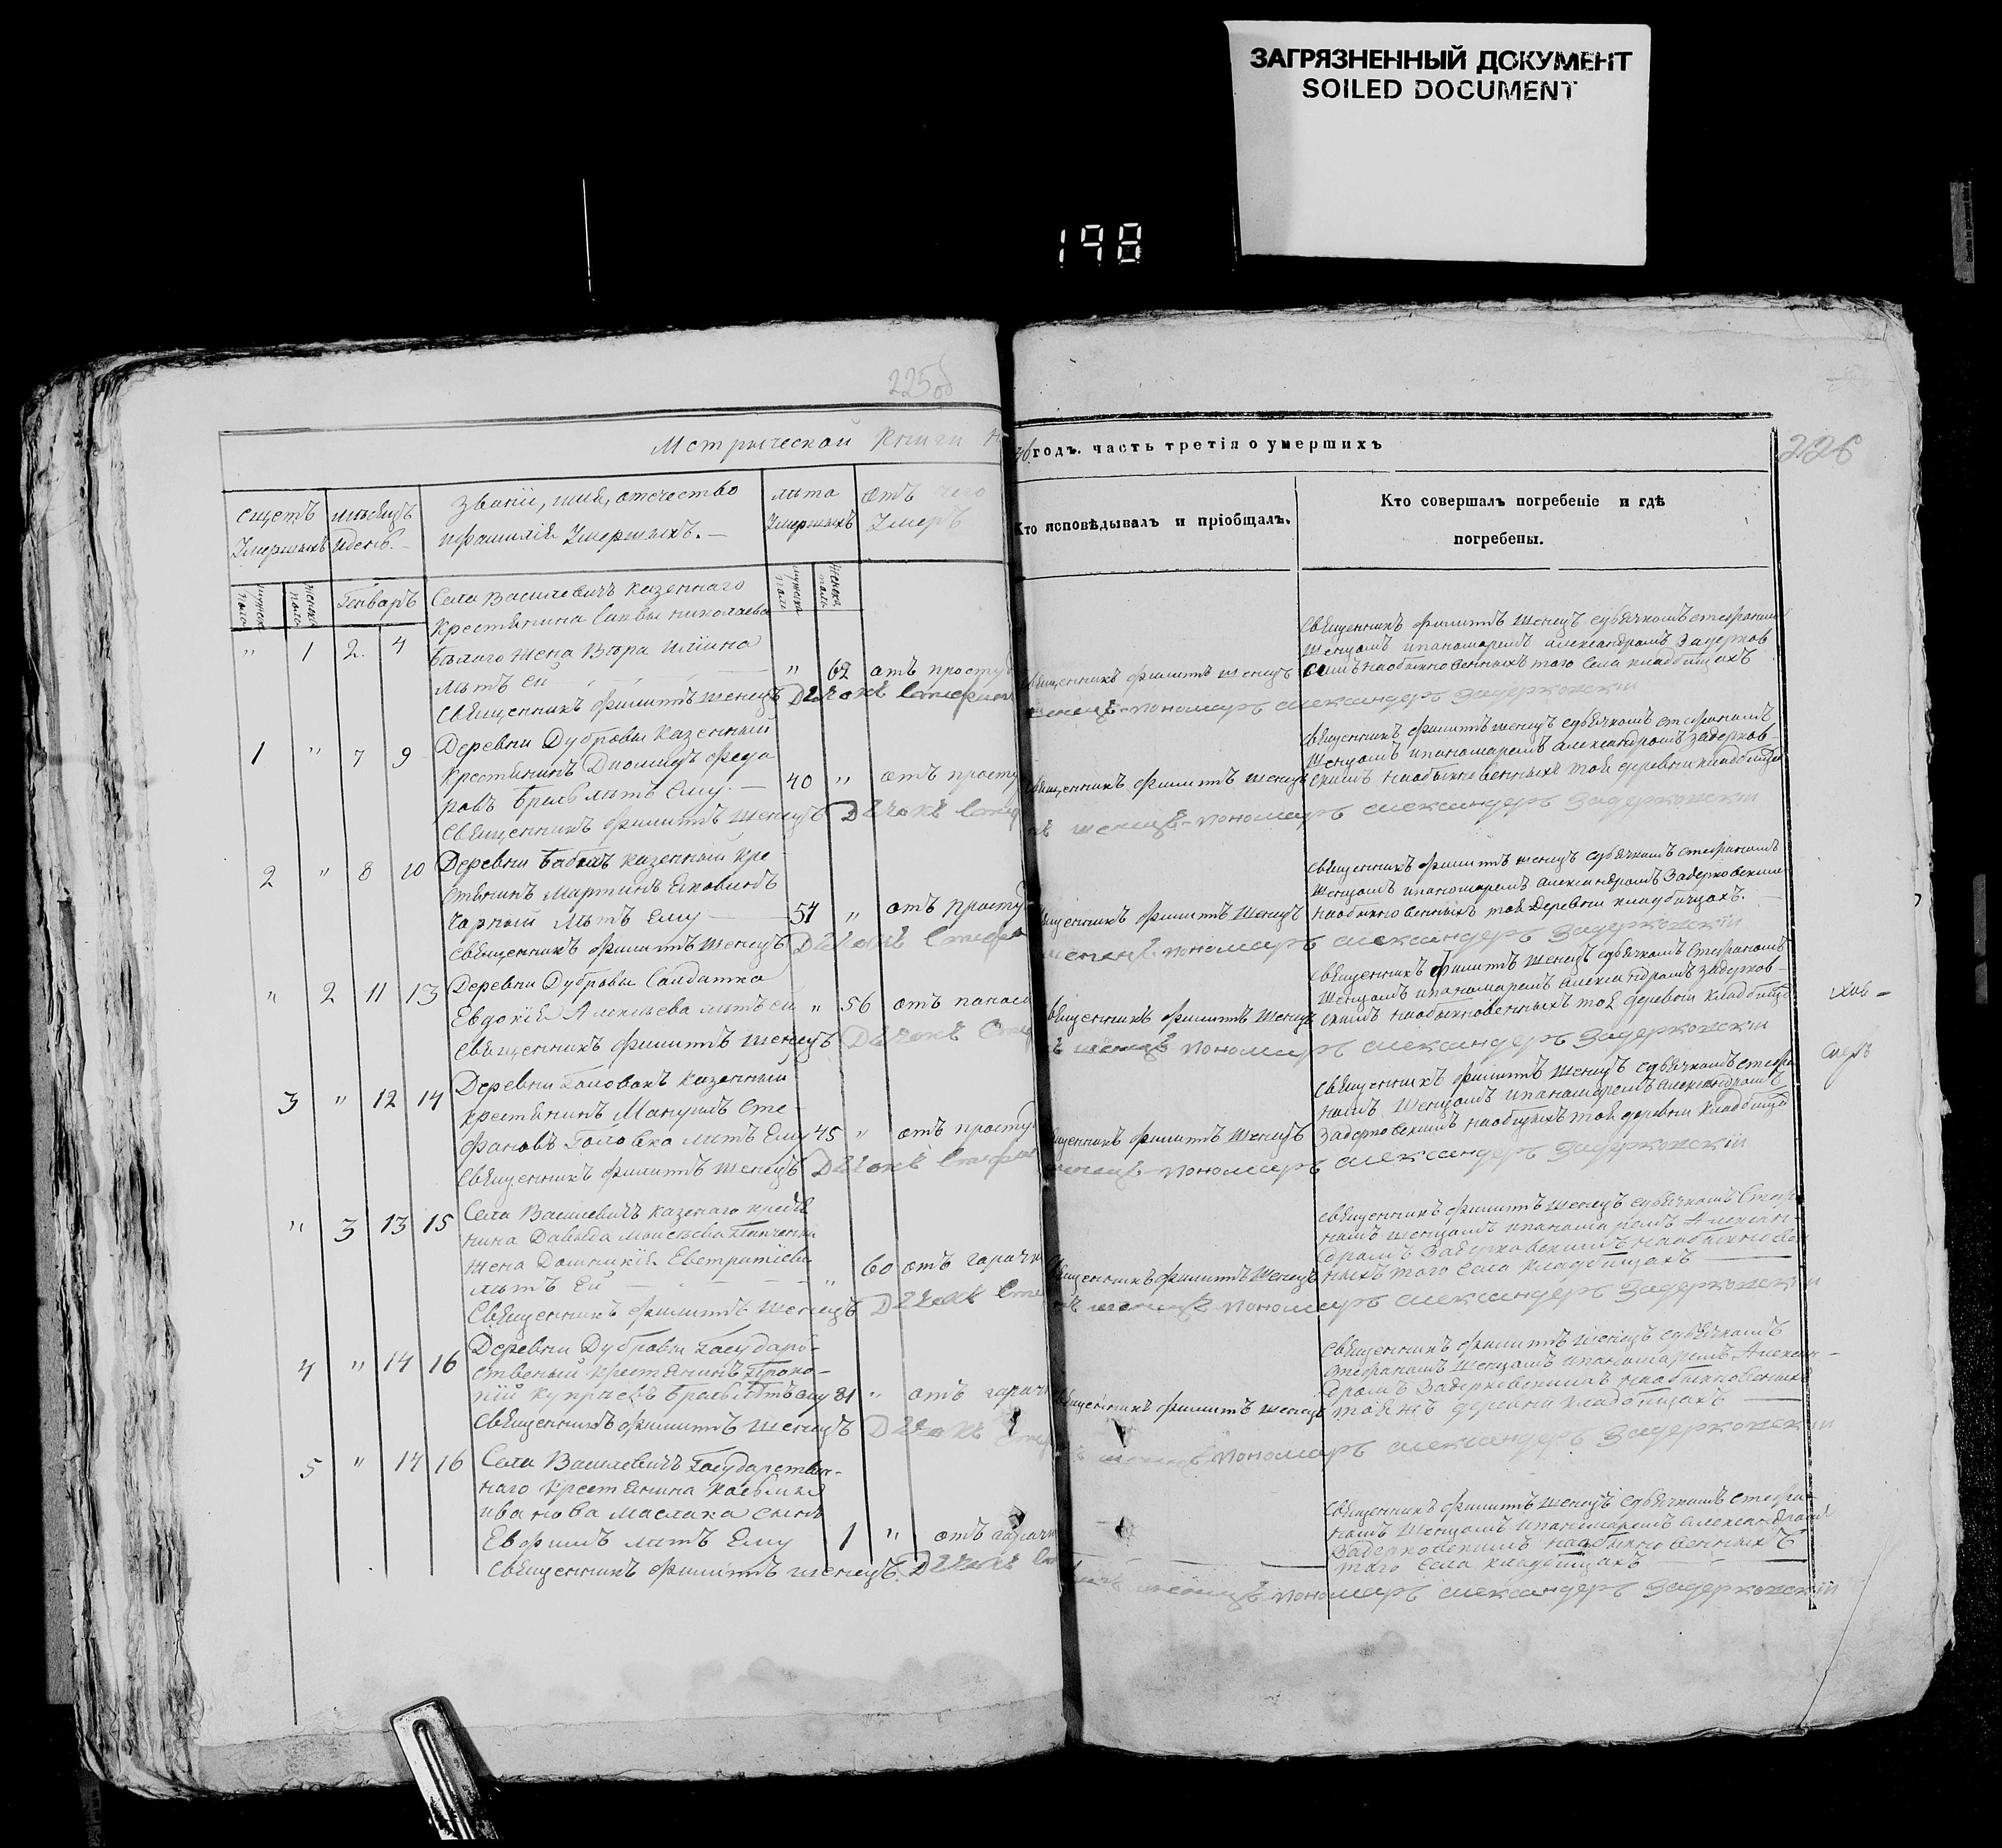 ЗАГРЯЗНЕННЫЙ ДОКУМЕНТ
SOILED DOCUMENT
198
225 об
Метрической Книги
годъ. часть третія о умершихъ
226
счетъ Умершихъ
мѣсяцъ и день.
Званіи, имя, отечество и фамилія Умершыхъ.
лѣта Умершыхъ
отъ чего Умеръ
Кто исповѣдывалъ и пріобщалъ.
Кто совершалъ погребеніе и гдѣ
погребены.
Генваръ
Села Василевичъ казеннаго
Крестянина Саввы николаева
" 1 2 4 Бѣлаго жена Вѣра Иліина
лѣтъ ей " 62 отъ просту
Священникъ филиппъ шенецъ
Священникъ филиппъ шенецъ Сдьячкомъ стефаномъ
Шенцомъ ипаномаремъ александромъ Задерков
скимъ наобыкновенныхъ того Села кладбищахъ
Священникъ филиппъ шенецъ Дьчокъ Стефан шенецъ пономаръ александеръ Задерковскій
1 " 7 9 Деревни Дубровы Казенный
Крестянинъ Диомидъ федо
ровъ Брель лѣтъ Ему 40 " отъ просту
Священникъ филиппъ шенецъ
Священникъ филиппъ шенецъ сдьячкомъ стефаномъ
Шенцомъ ипаномаремъ александромъ задерков
скимъ наобыкновенныхъ той деревни кладбищахъ
Священникъ филиппъ шенецъ Дьчокъ шенецъ пономаръ александеръ Задерковскій
2 " 8 10 Деревни казенный Кре
стянинъ Мартинъ Яковлевъ
Чорный лѣтъ Ему 54 " отъ просту
Священникъ филиппъ Шенецъ
Священникъ филиппъ шенецъ сдьячкомъ стефаномъ
Шенцомъ ипаномаремъ александромъ Задерковскимъ
наобыкновенныхъ той Деревни кладбищахъ.
Священникъ филиппъ шенецъ Дьчокъ Стефа шенецъ пономаръ александеръ Задерковскій
" 2 11 13 Деревни Дубровы Салдатка
Евдокія лѣтъ ей " 56 отъ
Священникъ филиппъ Шенецъ
Священникъ филиппъ Шенецъ сдьячкомъ Стефаномъ
Шенцомъ ипаномаремъ александромъ задерков
скимъ наобыкновенныхъ той деревни Кладбище
Священникъ филиппъ шенецъ Дьчокъ шенецъ пономаръ александеръ Задерковскій
3 " 12 14 Деревни Головокъ казенный
крестянинъ Мануилъ Сте
фановъ Головко лѣтъ Ему 45 " отъ просту
Священникъ филиппъ Шенецъ
Священникъ филиппъ Шенецъ сдьячкомъ стефа
номъ Шенцомъ ипаномаремъ александромъ
Задерковскимъ наобщихъ той деревни Кладбище
Священникъ филиппъ шенецъ Дьчокъ шенецъ пономаръ александеръ Задерковскій
" 3 13 15 Села Василевичъ казенаго крестя
нина Давыда
жена Домникія Евстратіева
лѣтъ Ей " 60 отъ гарачк
Священникъ филиппъ Шенецъ
Священникъ филиппъ шенецъ сдьячкомъ Стефа
номъ шенцомъ ипаномаремъ Алексан
дромъ Задерковскимъ наобыкновен
ныхъ того Села кладбищахъ
Священникъ филиппъ шенецъ Дьчокъ шенецъ пономаръ александеръ Задерковскій
4 " 14 16 Деревни Дубровы Государ
ственый крестянинъ Проко
пій Куприевъ Брель лѣтъ ему 81 " отъ гарач
Священникъ филиппъ шенецъ
Священникъ филиппъ шенецъ сдьячкомъ
стефаномъ Шенцомъ ипаномаремъ Алексан
дромъ Задерковскимъ наобыкновенныхъ
тояжъ деревни кладбищахъ
Священникъ филиппъ шенецъ пономаръ александеръ Задерковскій
5 " 14 16 Села Василевичъ Государствен
наго крестянина
иванова Маслака сынъ
Ефимъ лѣтъ Ему 1 " отъ гарачк
Священникъ филиппъ шенецъ сдьячкомъ стефа
номъ Шенцомъ ипаномаремъ александромъ
Задерковскимъ наобыкновенныхъ
того Села кладбищахъ
Священникъ филиппъ шенецъ Дьчокъ шенецъ пономаръ александеръ Задерковскій